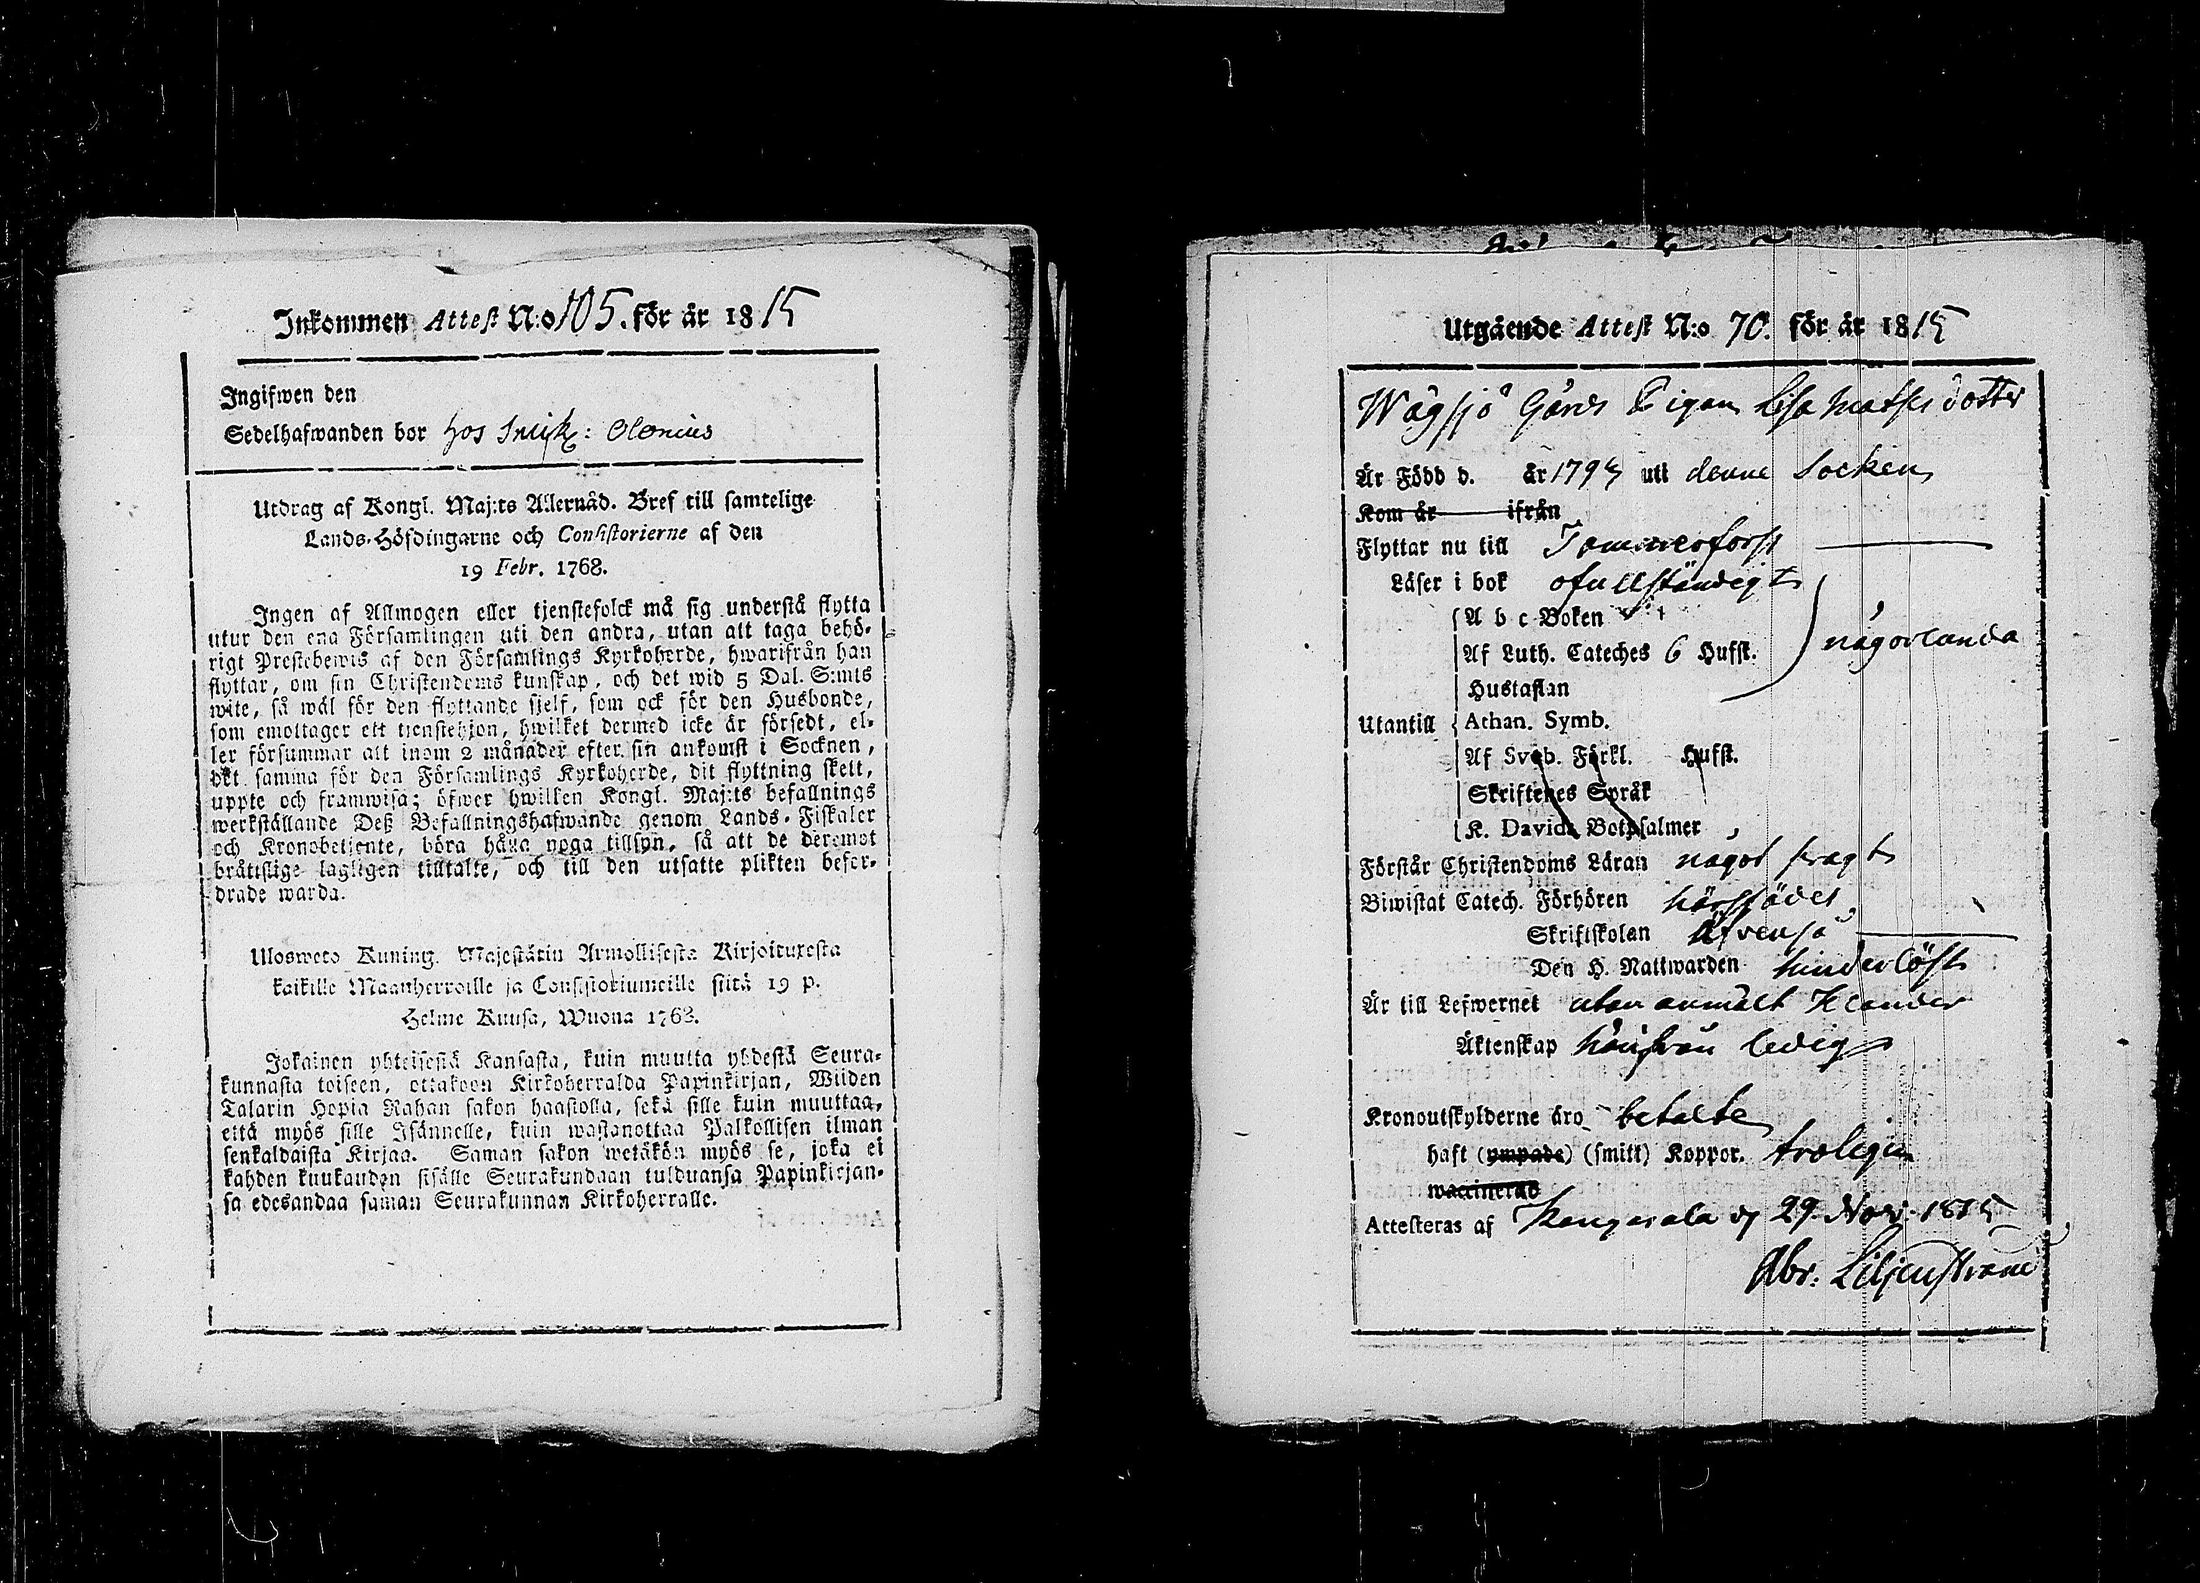 Inkommen Attest N:o 105. för år 1815
Ingifwen den
Sedelhafwanden bor hos Snik: Olonius
Utdrag af Kongl. Maj:ts Allernåd. Bref till samtelige
Lands-Höfdingarne och Consistorierne af den
19 Febr. 1768.
Ingen af Allmogen eller tjenstefolck må sig understå flytta
utur den ena Församlingen uti den andra, utan att taga behö-
rigt Prestebewis af den Församlings Kyrkoherde, hwarifrån han
flyttar, om sin Christendoms kunskap, och det wid 5 Dal. S:mts
wite, så wäl för den flyttande sjelf, som ock för den Husbonde,
som emottager ett tienstehjon, hwilket dermed icke är försedt, el-
ler försummar att inom 2 månader efter sin ankomst i Socknen,
det samma för den Församlings Kyrkoherde, dit flyttning skett,
uppte och framwisa; öfwer hwilken Kongl. Maj:ts befallnings
werkställande Deß Befallningshafwande genom Lands-Fiskaler
och Kronobetjente, böra hafwa noga tillsyn, så att de deremot
bråttslige lagligen tilltalte, och till den utsatte plikten befor-
drade warda.
Uloswets Kuning. Majestätin Armollisesta Kirjoituxesta
kaikille Maanherroille ja Consistoriumeille siitä 19 p.
Helme Kuusa, Wuona 1768.
Jokainen yhteisestä Kansasta, kuin muutta yhdestä Seura-
kunnasta toiseen, ottakoon Kirkoherralda Papinkirjan, Wiiden
Talarin Hopia Rahan sakon haastolla, sekä sille kuin muuttaa,
että myös sille Isännelle, kuin wastanottaa Palkollisen ilman
senkaldaista Kirjaa. Saman sakon wetäkön myös se, joka ei
kahden kuukauden sisälle Seurakundaan tulduansa Papinkirjan-
sa edesandaa saman Seurakunnan Kirkoherralle.
Utgående Attest N:o 70. för år 1815
Wägsjö Gårds Pigan Lisa Matsdotter
Är Född d. år 179 uti denne Socken
Kom år ifrån
Flyttar nu till Tammerfors
Läser i bok ofullständigt
A b c Boken
Af Luth. Cateches 6 Hufst. någorlunda
Hustaflan
Utantill Athan. Symb.
Af Sveb. Förkl. Hufst.
Skriftenes Språk
K. Davids Botpsalmer
Förstår Christendoms Läran något svagt
Biwistat Catech. Förhören härstädes
Skriftskolan äfvenså
Den H. Nattwarden hinderlöst
Är till Lefwernet utan anmält klander
Äktenskap härifrån ledig
Kronoutskylderne äro betalte
haft (ympade) (smitt) Koppor. troligen
waccinerad
Attesteras af Kangasala d 29 Nov: 1815
Abr: Liljenstrand